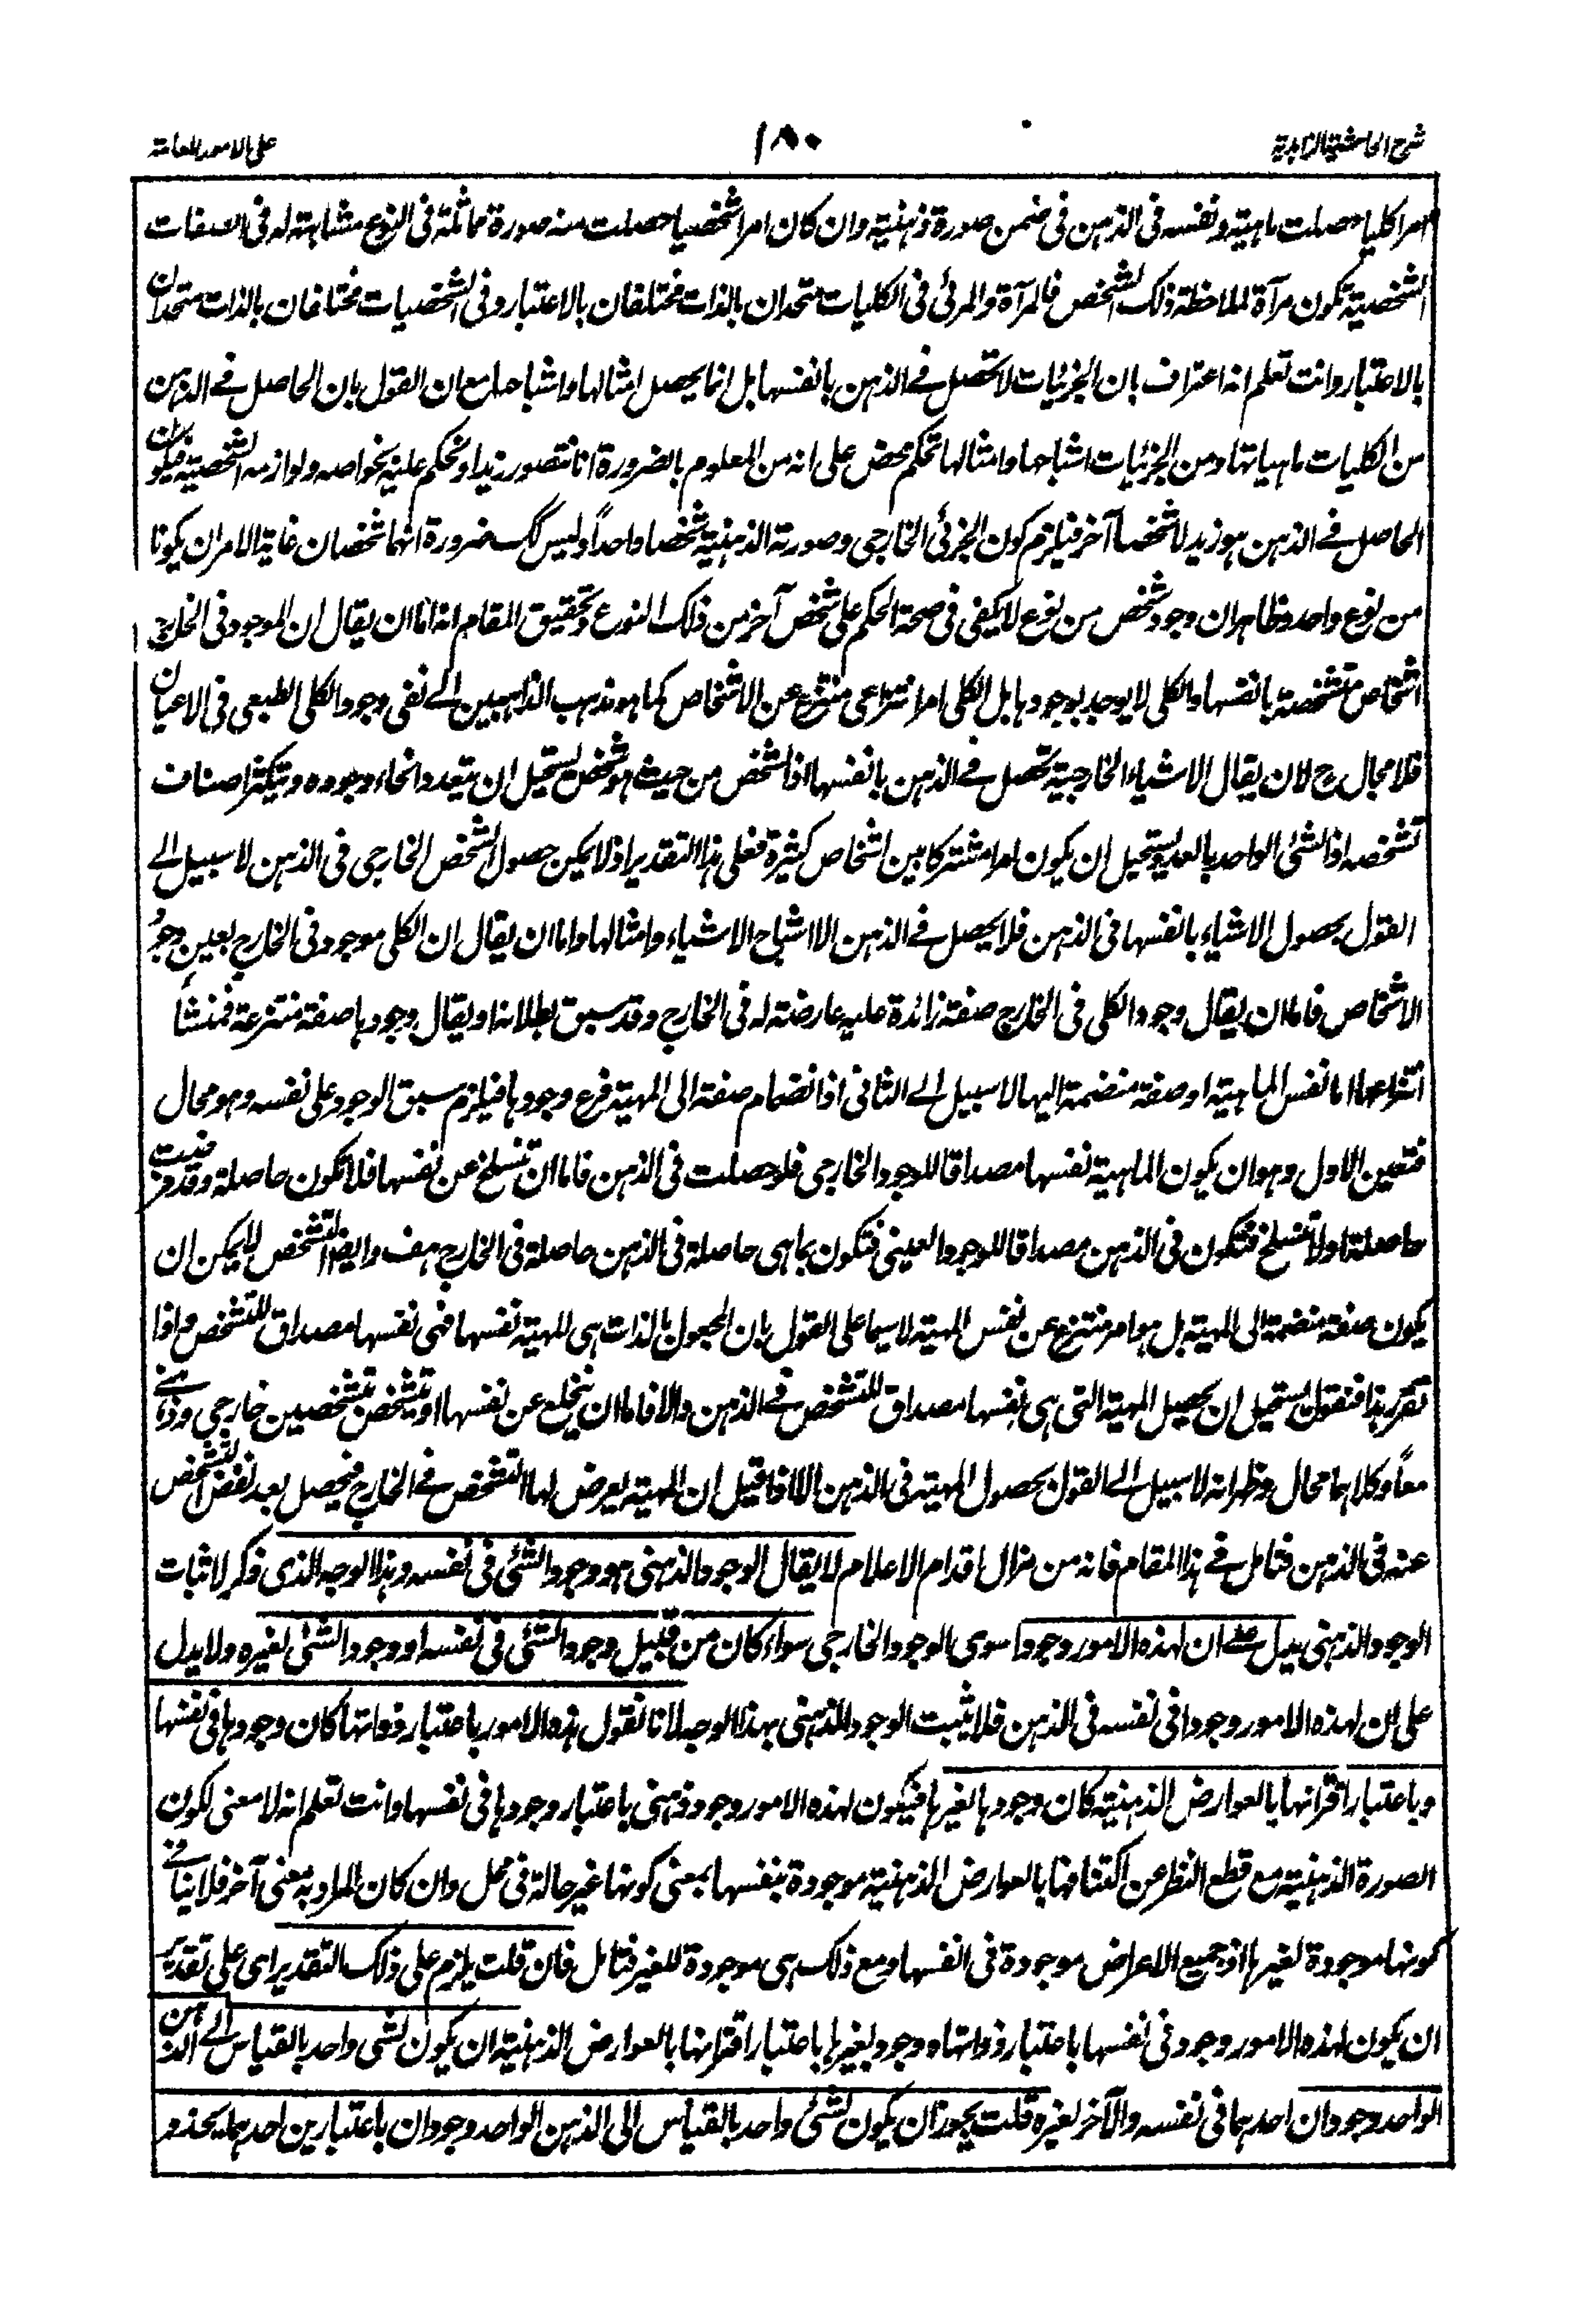 شرح الحاشية الزاهدية
١٨٠
على الامور العامة
امرا كليا حصلت ماهيته ونفسه فى الذهن فى ضمن صورة ذهنية وان كان امرا شخصيا حصلت منه صورة مماثلة فى النوع مشابهة له فى الصفات
الشخصية تكون مرآة لملاحظة ذلك الشخص فالمرآة والمرئى فى الكليات متحدان بالذات مختلفان بالاعتبار وفى الشخصيات مختلفان بالذات متحدان
بالاعتبار وانت تعلم انه اعتراف بان الجزئيات لا تحصل فے الذهن بانفسها بل انما يحصل امثالها واشباحها مع ان القول بان الحاصل فے الذهن
من الكليات ماهياتها ومن الجزئيات اشباحها وامثالها تحكم محض على انه من المعلوم بالضرورة انا نتصور زيدا ونحكم عليه بخواصه ولوازمه الشخصية فيكون
الحاصل فے الذهن هو زيد لا شخصا آخر فيلزم كون الجزئى الخارجى وصورته الذهنية شخصا واحداً وليس كك ضرورة انهما شخصان غاية الامر ان يكونا
من نوع واحد وظاهر ان وجود شخص من نوع لا يكفى فى صحة الحكم على شخص آخر من ذلك النوع وتحقيق المقام انه اما ان يقال ان الموجود فى الخارج
اشخاص متشخصة بانفسها والكلى لا يوجد بوجودها بل الكلى امر انتزاعى منتزع عن الاشخاص كما هو مذهب الذاهبين الے نفى وجود الكلى الطبعى فى الاعيان
فلا مجال ح لان يقال الاشياء الخارجية تحصل فے الذهن بانفسها اذ الشخص من حيث هو شخص يستحيل ان يتعدد انحاء وجوده ويتكثر اصناف
تشخصه اذ الشئ الواحد بالعدد يستحيل ان يكون امرا مشتركا بين اشخاص كثيرة فعلى هذا التقدير اذ لا يمكن حصول الشخص الخارجى فى الذهن لا سبيل الے
القول بحصول الاشياء بانفسها فى الذهن فلا يحصل فے الذهن الا اشباح الاشياء وامثالها واما ان يقال ان الكلى موجود فى الخارج بعين وجود
الاشخاص فاما ان يقال وجود الكلى فى الخارج صفة زائدة عليه عارضة له فى الخارج وقد سبق بطلانه او يقال وجودها صفة منتزعة فمنشأ
انتزاعها اما نفس الماهية او صفة منضمة اليها لا سبيل الے الثانى اذ انضمام صفة الى المهية فرع وجودها فيلزم سبق الوجود على نفسه وهو محال
فتعين الاول وهو ان يكون الماهية نفسها مصداقا للوجود الخارجى فلو حصلت فى الذهن فاما ان تنسلخ عن نفسها فلا تكون حاصلة وقد فرضت
حاصلة او لا تنسلخ فتكون فى الذهن مصداقا للوجود العينى فتكون بما هى حاصلة فى الذهن حاصلة فى الخارج هف وايضا التشخص لا يمكن ان
يكون صفة منضمة الى المهية بل هو امر منتزع عن نفس المهية لا سيما على القول بان المجعول بالذات هى المهية نفسها فهى نفسها مصداق للتشخص واذا
تقرر هذا فنقول يستحيل ان يحصل المهية التى هى نفسها مصداق للتشخص فے الذهن والا فاما ان ينخلع عن نفسها او يتشخص بتشخصين خارجى وذهنے
معاً وكلاهما محال وظهر انه لا سبيل الے القول بحصول المهية فى الذهن الا اذا قيل ان المهية يعرض لها التشخص فے الخارج فيحصل بعد نفض التشخص
عنه فى الذهن فتامل فے هذا المقام فانه من مزال اقدام الاعلام لا يقال الوجود الذهنى هو وجود الشئ فى نفسه وبهذا الوجه الذى ذكر لاثبات
الوجود الذهنى يدل علے ان لهذه الامور وجودا سوى الوجود الخارجى سواء كان من قبيل وجود الشئ فى نفسه او وجود الشئ لغيره ولا يدل
على ان لهذه الامور وجودا فى نفسه فى الذهن فلا يثبت الوجود الذهنى بهذا الوجه لانا نقول هذه الامور باعتبار ذواتها كان وجودها فى نفسها
وباعتبار اقترانها بالعوارض الذهنية كان وجودها لغيرها فيكون لهذه الامور وجود ذهنى باعتبار وجودها فى نفسها وانت تعلم انه لا معنى لكون
الصورة الذهنية مع قطع النظر عن اكتنافها بالعوارض الذهنية موجودة بنفسها بمعنى كونها غير حالة فى محل وان كان المراد به معنى آخر فلا ينافے
كونها موجودة لغيرها اذ جميع الاعراض موجودة فى انفسها ومع ذلك هى موجودة للغير فتامل فان قلت يلزم على ذلك التقدير اى على تقدير
ان يكون لهذه الامور وجود فى نفسها باعتبار ذواتها ووجود لغيرها باعتبار اقترانها بالعوارض الذهنية ان يكون لشى واحد بالقياس الے الذهن
الواحد وجودان احدهما فى نفسه والآخر لغيره قلت يجوز ان يكون لشئ واحد بالقياس الى الذهن الواحد وجودان باعتبارين احدهما يحذو